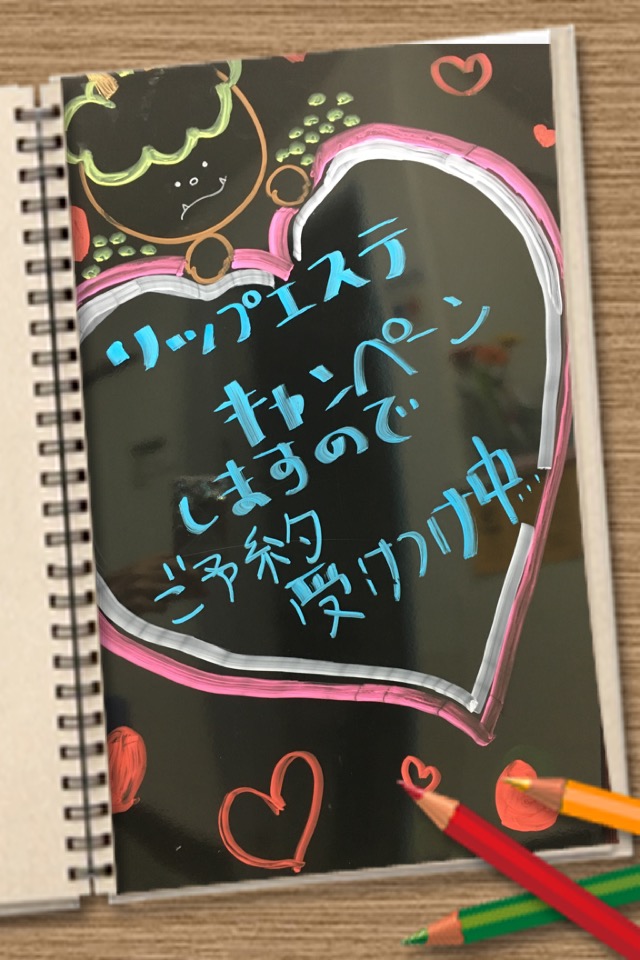 リップエステ
キャンペーン
しますので
ご予約
受けつけ中…